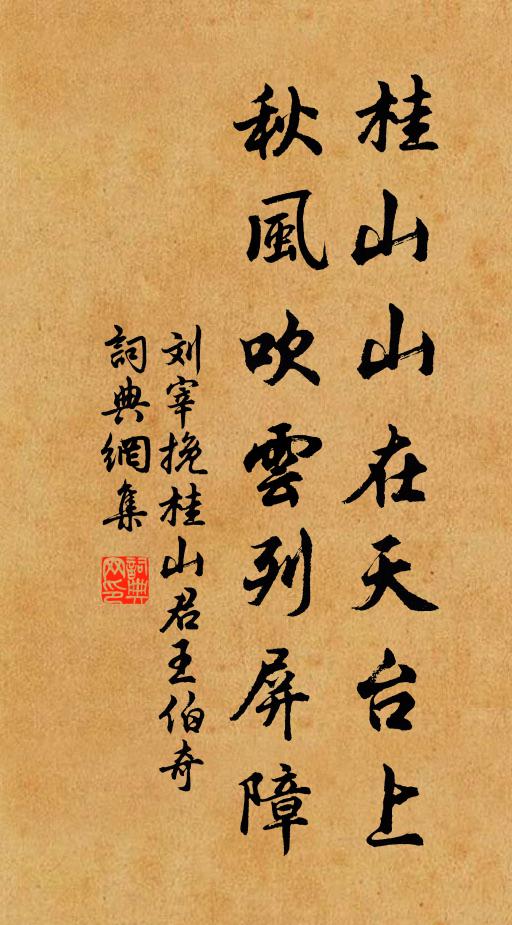 桂山山在天台上
秋風吹雲列屏障
刘宰挽桂山君王伯奇
詞典網集
詞典网印